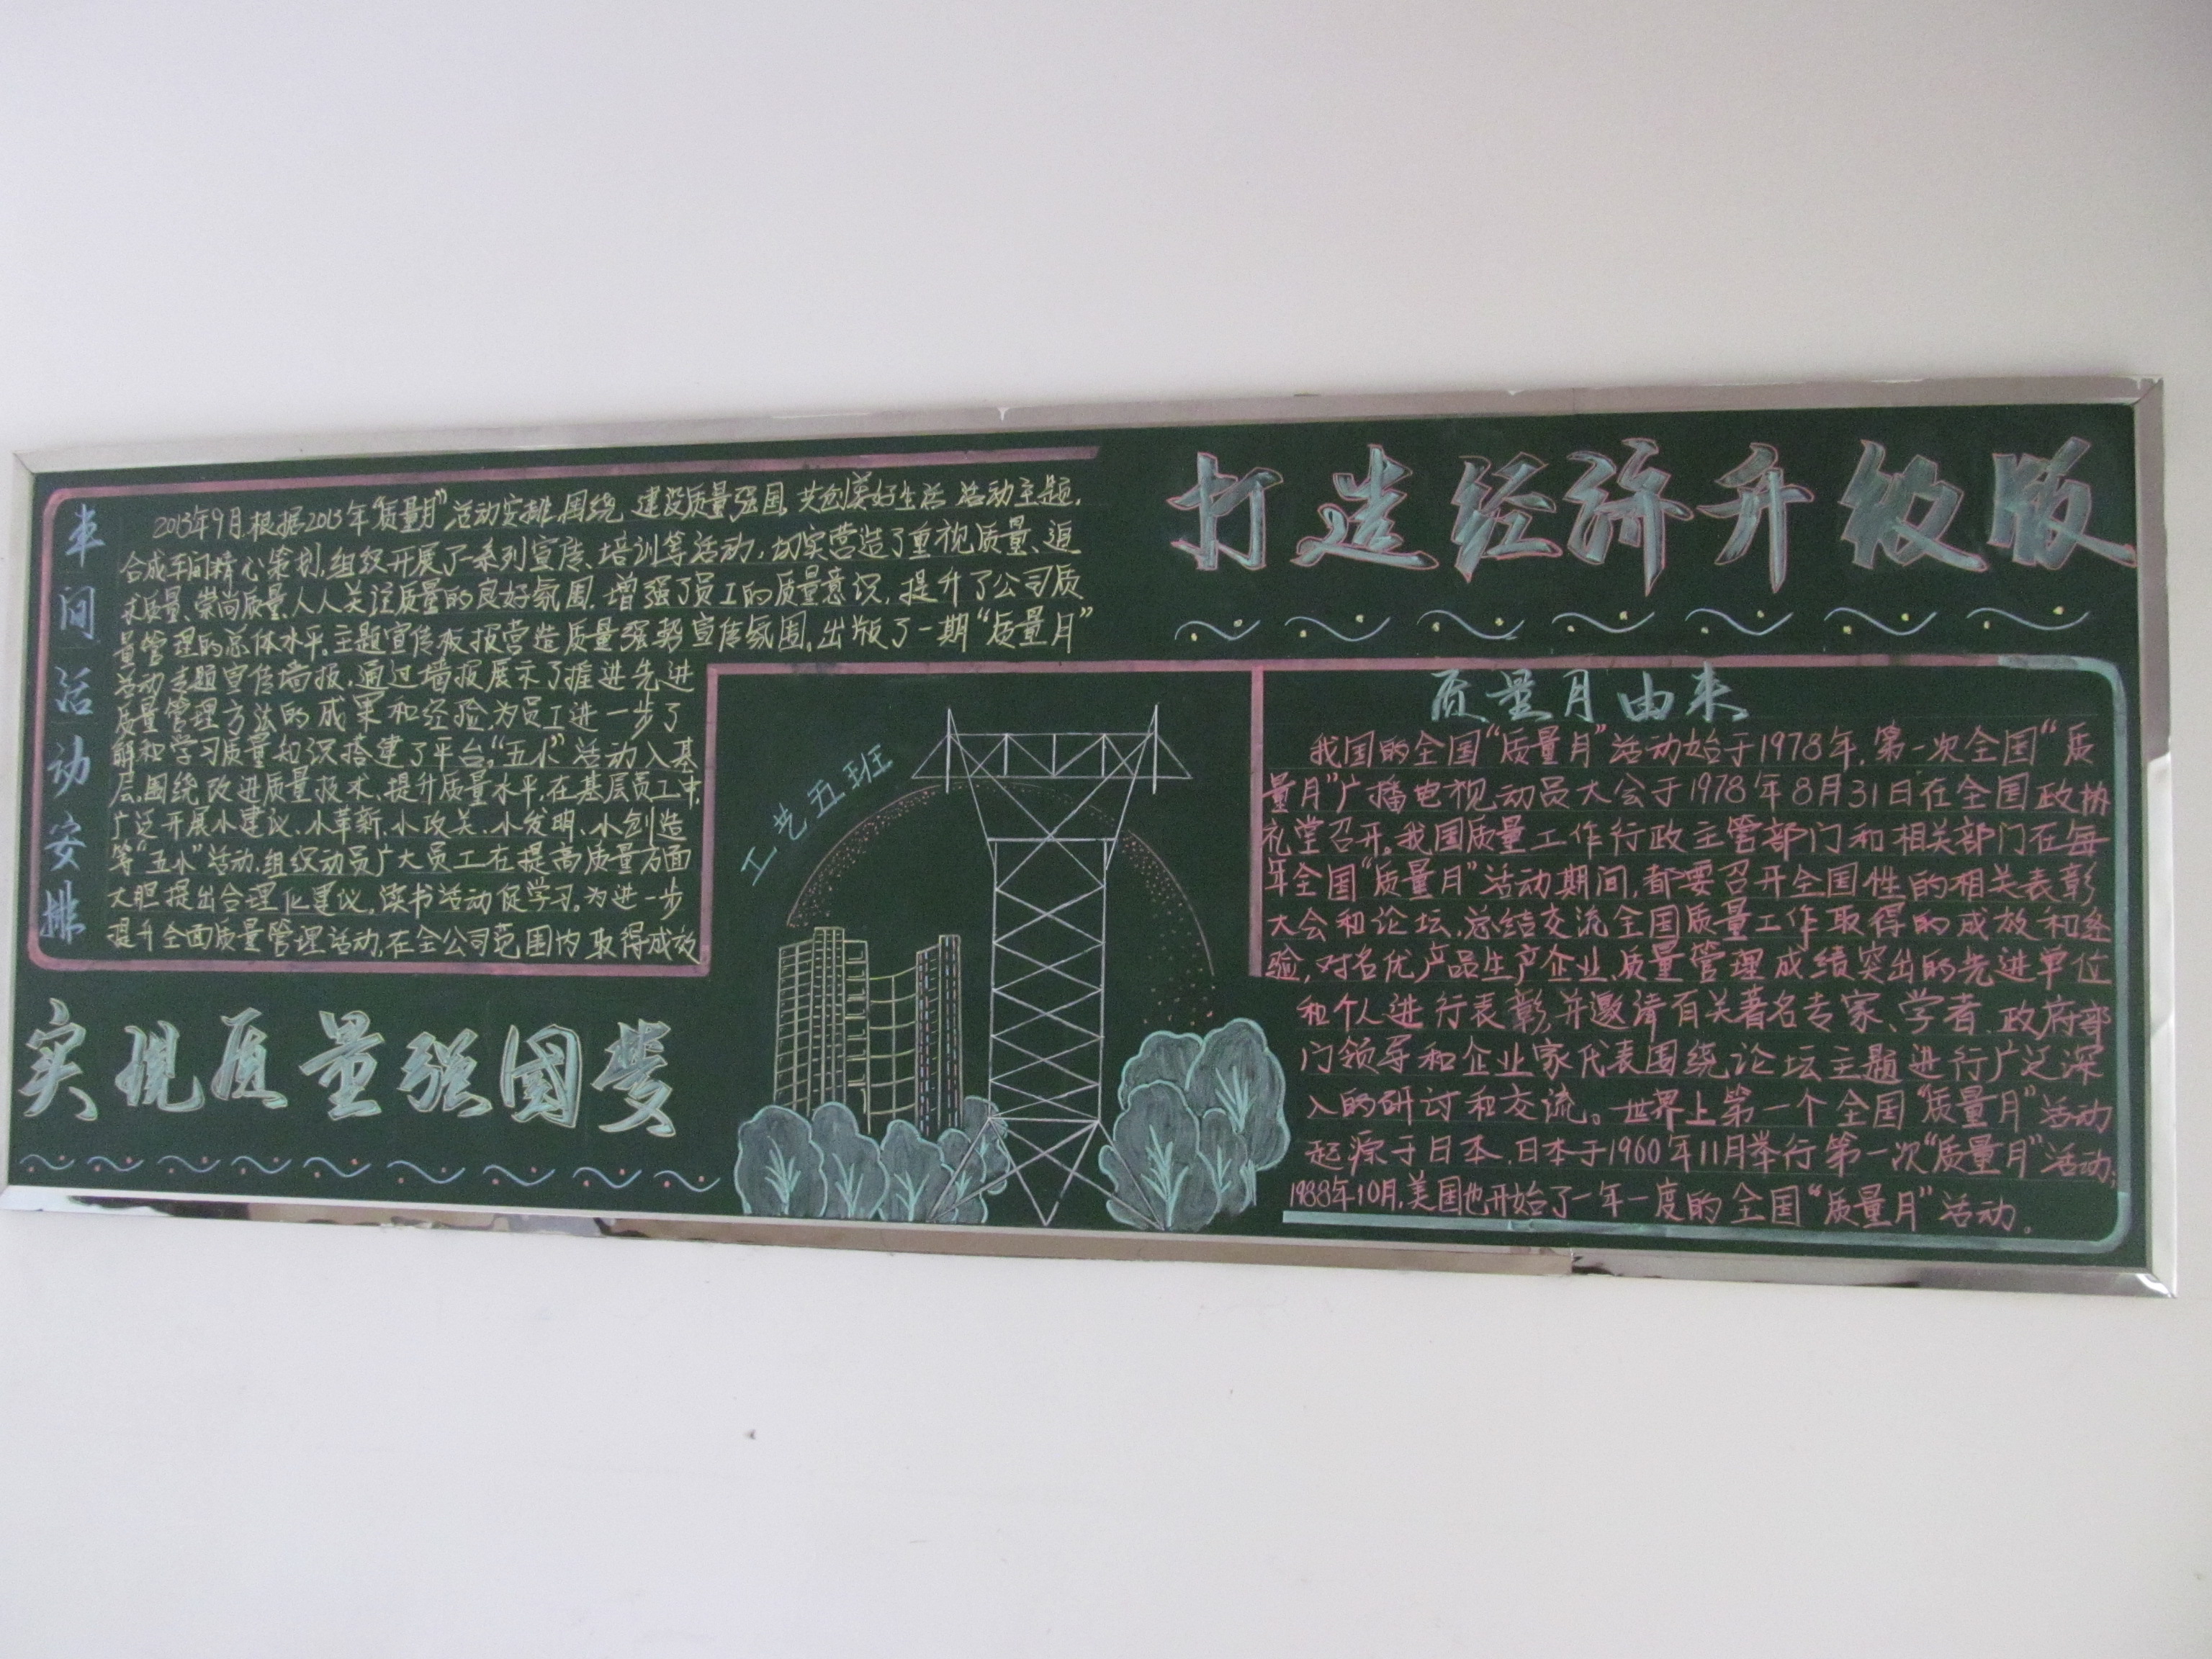 打造经济升级版
车间活动安排
2013年9月,根据2013年“质量月”活动安排,围绕 建设质量强国,共创美好生活 活动主题,
合成车间精心策划,组织开展了一系列宣传、培训等活动,切实营造了重视质量、追
求质量、崇尚质量、人人关注质量的良好氛围,增强了员工的质量意识,提升了公司质
量管理的总体水平。主题宣传板报营造质量强势宣传氛围。出版了一期“质量月”
活动专题宣传墙报,通过墙报展示了推进先进
质量管理方法的成果和经验,为员工进一步了
解和学习质量知识搭建了平台。“五小”活动入基
层,围绕改进质量技术、提升质量水平,在基层员工中,
广泛开展小建议、小革新、小攻关、小发明、小创造
等“五小”活动,组织动员广大员工在提高质量方面
大胆提出合理化建议。读书活动促学习。为进一步
提升全面质量管理活动,在全公司范围内取得成效
实现质量强国梦
工艺五班
质量月由来
我国的全国“质量月”活动始于1978年,第一次全国“质
量月”广播电视动员大会于1978年8月31日在全国政协
礼堂召开。我国质量工作行政主管部门和相关部门在每
年全国“质量月”活动期间,都要召开全国性的相关表彰
大会和论坛,总结交流全国质量工作取得的成效和经
验,对名优产品生产企业,质量管理成绩突出的先进单位
和个人进行表彰,并邀请有关著名专家、学者、政府部
门领导和企业家代表围绕论坛主题进行广泛深
入的研讨和交流。世界上第一个全国“质量月”活动
起源于日本,日本于1960年11月举行第一次“质量月”活动;
1988年10月,美国也开始了一年一度的全国“质量月”活动。